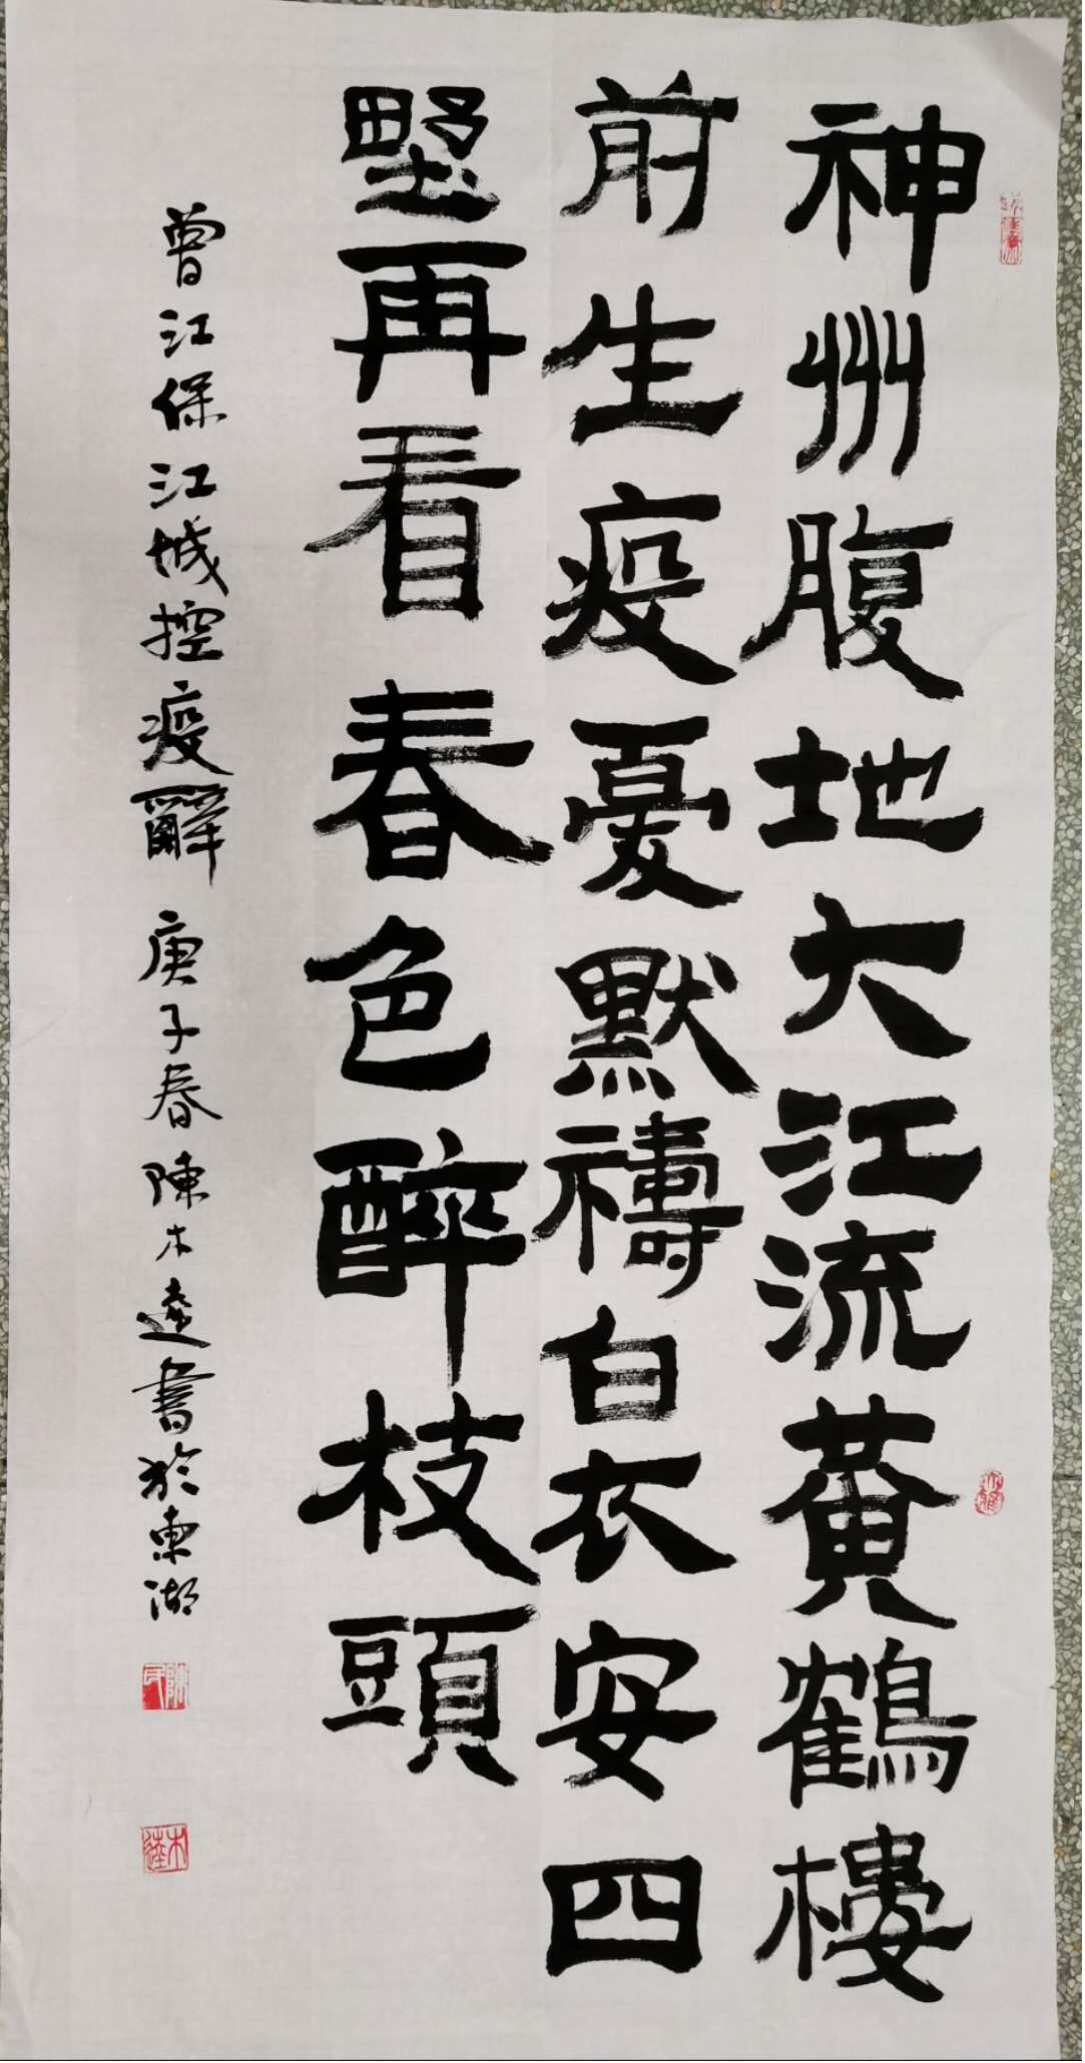 神州腹地大江流黃鶴樓
前生疫憂默禱白衣安四
野再看春色醉枝頭
曾江保江城控疫辭 庚子春 陳木達書於東湖
陳
木達